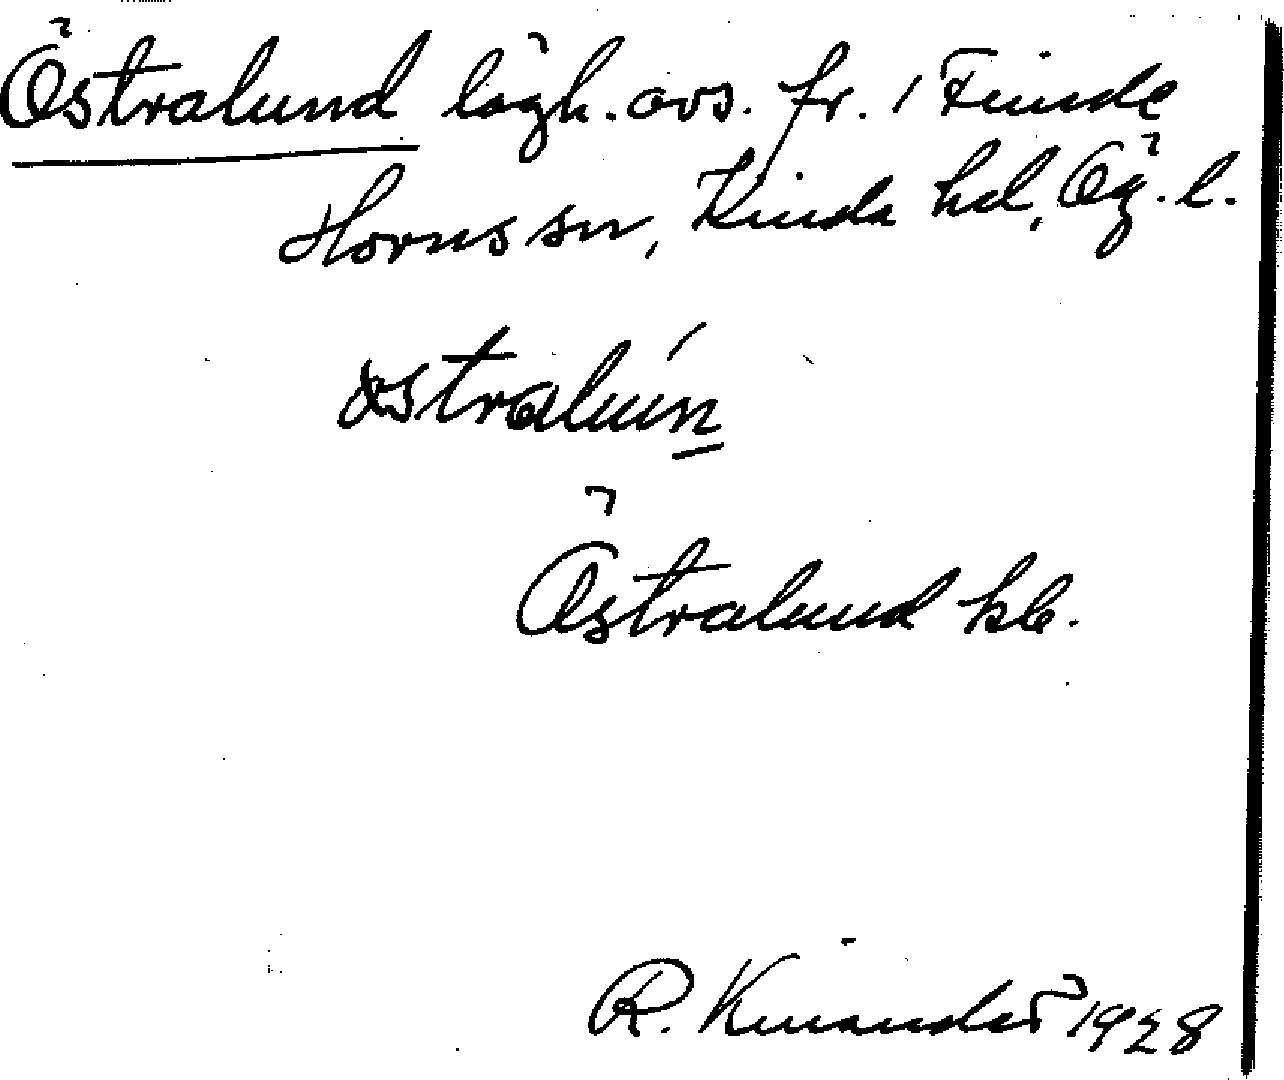 Östralund lägh. avs. fr. 1 Fiinde
Horns sn, Kinda hd, Ög. l.
östralún
Östralund kb.
R. Kinander 1928